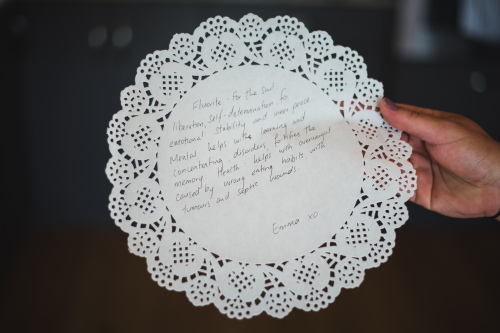 Fluorite - for the Soul
liberation, self-determination, for
emotional stability and inner peace.
Mental helps with learning and
concentrating disorders, fortifies the
memory. Health helps with overweight
caused by wrong eating habits, with
tumours and septic wounds.
Emma xo